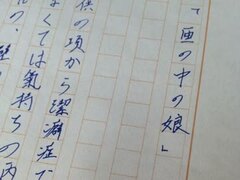 「画の中の娘」
供の頃から潔癖症で
なくては氣持ちの